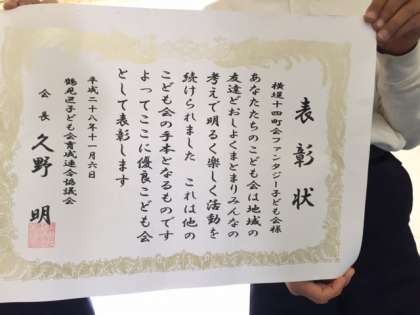 表彰状
横堤十四町会ファンタジー子ども会様
あなたたちのこども会は地域の
友達どおしよくまとまりみんなの
考えで明るく楽しく活動を
続けられました これは他の
こども会の手本となるものです
よってここに優良こども会
として表彰します
平成二十八年十一月六日
鶴見区子ども会育成連合協議会
会長 久野 明